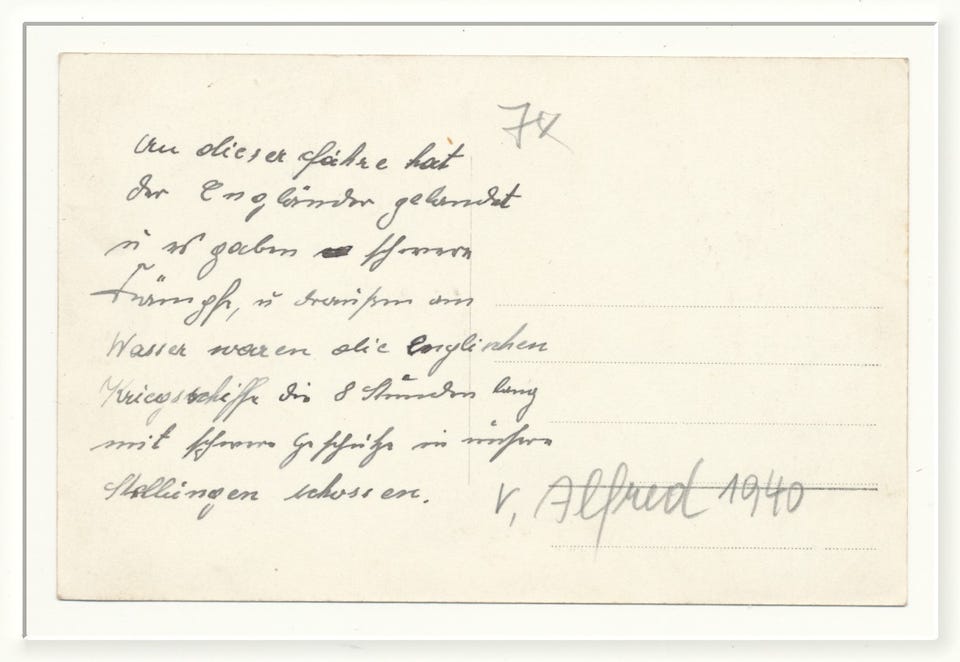 7x
An dieser Fähre hat
der Engländer gelandet
u es gaben schwere
Kämpfe, u draußen am
Wasser waren die Englischen
Kriegsschiffe die 8 Stunden lang
mit schwere Geschütze in unsere
Stellungen schossen.
v. Alfred 1940